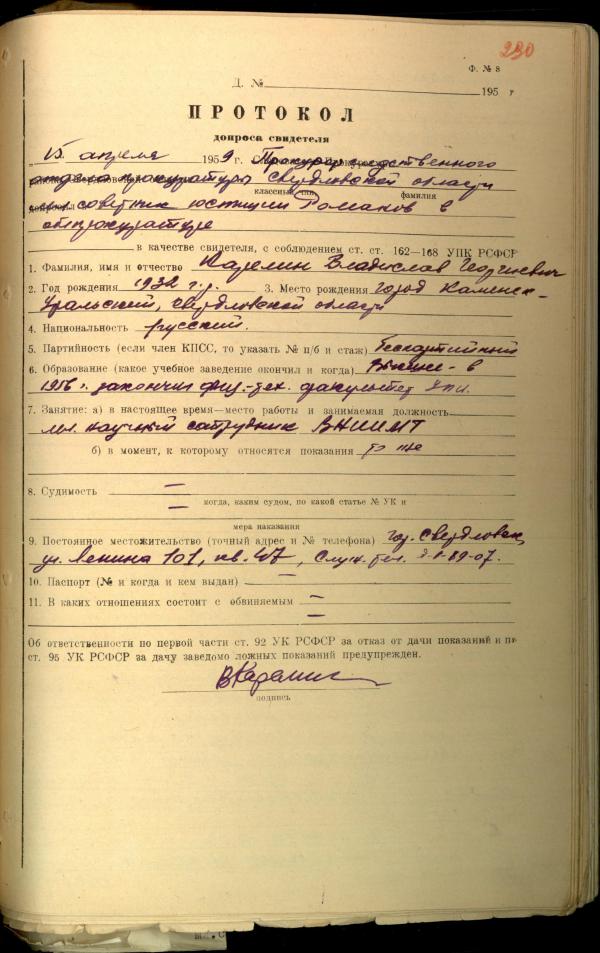 230
Ф. № 8
Д. № 195 г
ПРОТОКОЛ
допроса свидетеля
15 апреля 1959 г. Прокурор следственного
отдела прокуратуры Свердловской области
классный чин фамилия
советник юстиции Романов в
облпрокуратуре
в качестве свидетеля, с соблюдением ст. ст. 162—168 УПК РСФСР
1. Фамилия, имя и отчество Карелин Владислав Георгиевич
2. Год рождения 1932 г.р. 3. Место рождения город Каменск-
Уральский, Свердловской области
4. Национальность русский.
5. Партийность (если член КПСС, то указать № п/б и стаж) Беспартийный
6. Образование (какое учебное заведение окончил и когда) Высшее - в
1956 г. закончил физ.-тех. факультет УПИ.
7. Занятие: а) в настоящее время—место работы и занимаемая должность
мл. научный сотрудник ВНИИМТ
б) в момент, к которому относятся показания то же
8. Судимость —
— когда, каким судом, по какой статье № УК и
мера наказания
9. Постоянное местожительство (точный адрес и № телефона) гор. Свердловск,
ул. Ленина 101, кв. 47, Служ. тел.
10. Паспорт (№ и когда и кем выдан) —
11. В каких отношениях состоит с обвиняемым —
—
Об ответственности по первой части ст. 92 УК РСФСР за отказ от дачи показаний и по
ст. 95 УК РСФСР за дачу заведомо ложных показаний предупрежден.
ВКарелин
подпись